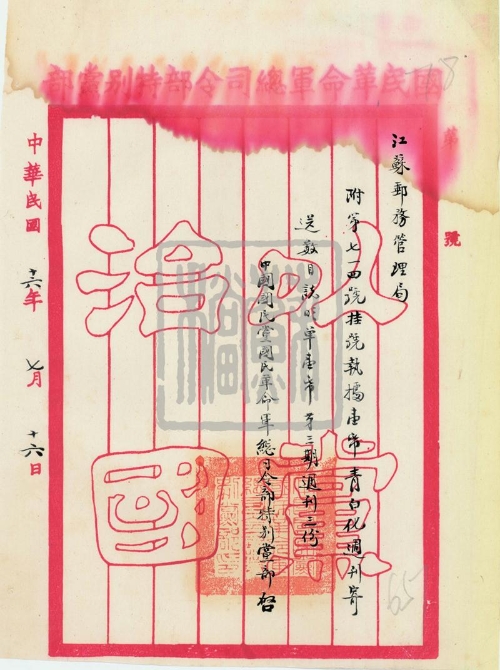 國民革命軍總司令部特別黨部
第 號
江蘇郵務管理局
附第七一四號挂號執據壹帋青白化週刊寄
送數目說明單壹帋第三期週刊三份
中國國民黨國民革命軍總司令部特別黨部啓
以黨
治國
中華民國十六年七月十六日
65